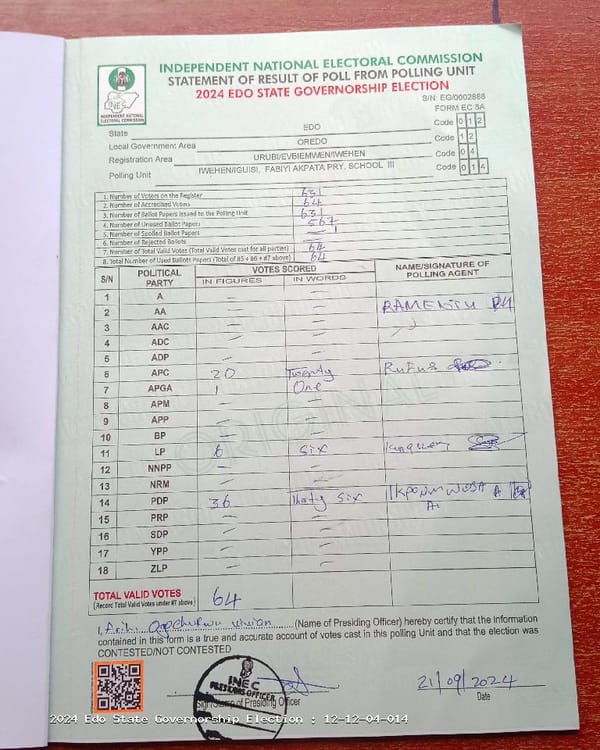 INDEPENDENT NATIONAL ELECTORAL COMMISSION
STATEMENT OF RESULT OF POLL FROM POLLING UNIT
2024 EDO STATE GOVERNORSHIP ELECTION
INEC
INDEPENDENT NATIONAL ELECTORAL COMMISSION
S/N: EG/0002888
FORM EC 8A
State EDO Code 0 1 2
Local Government Area OREDO Code 1 2
Registration Area URUBI/EVBIEMWEN/IWEHEN Code 0 4
Polling Unit IWEHEN/IGUISI, FABIYI AKPATA PRY. SCHOOL III Code 0 1 4
1. Number of Voters on the Register 631
2. Number of Accredited Voters 64
3. Number of Ballot Papers Issued to the Polling Unit 631
4. Number of Unused Ballot Papers 567
5. Number of Spoiled Ballot Papers —
6. Number of Rejected Ballots —
7. Number of Total Valid Votes (Total Valid Votes cast for all parties) 64
8. Total Number of Used Ballots Papers (Total of #5 + #6 + #7 above) 64
S/N POLITICAL PARTY VOTES SCORED NAME/SIGNATURE OF POLLING AGENT
IN FIGURES IN WORDS
1 A — —
2 AA — —
3 AAC — —
4 ADC — —
5 ADP — —
6 APC 20 Twenty Rufus
7 APGA 1 One
8 APM — —
9 APP — —
10 BP — —
11 LP 6 Six
12 NNPP — —
13 NRM — —
14 PDP 36 Thirty Six
15 PRP — —
16 SDP — —
17 YPP — —
18 ZLP — —
TOTAL VALID VOTES 64
(Record Total Valid Votes under #7 above)
I, (Name of Presiding Officer) hereby certify that the Information
contained in this form is a true and accurate account of votes cast in this polling Unit and that the election was
CONTESTED/NOT CONTESTED
INEC
PRESIDING OFFICER
21/09/2024
Sign/Stamp of Presiding Officer Date
2024 Edo State Governorship Election : 12-12-04-014